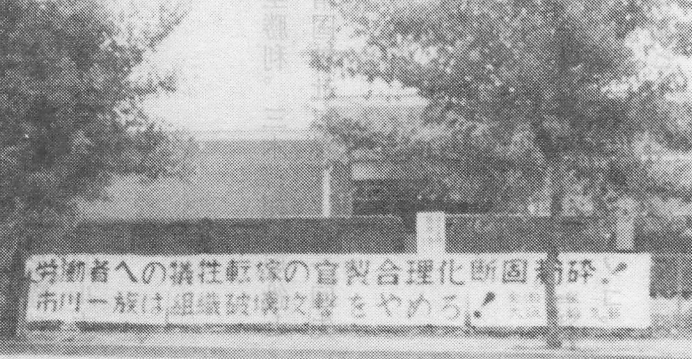 労働者への犠牲転嫁の官製合理化断固粉砕!
市川一族は組織破壊攻撃をやめろ!